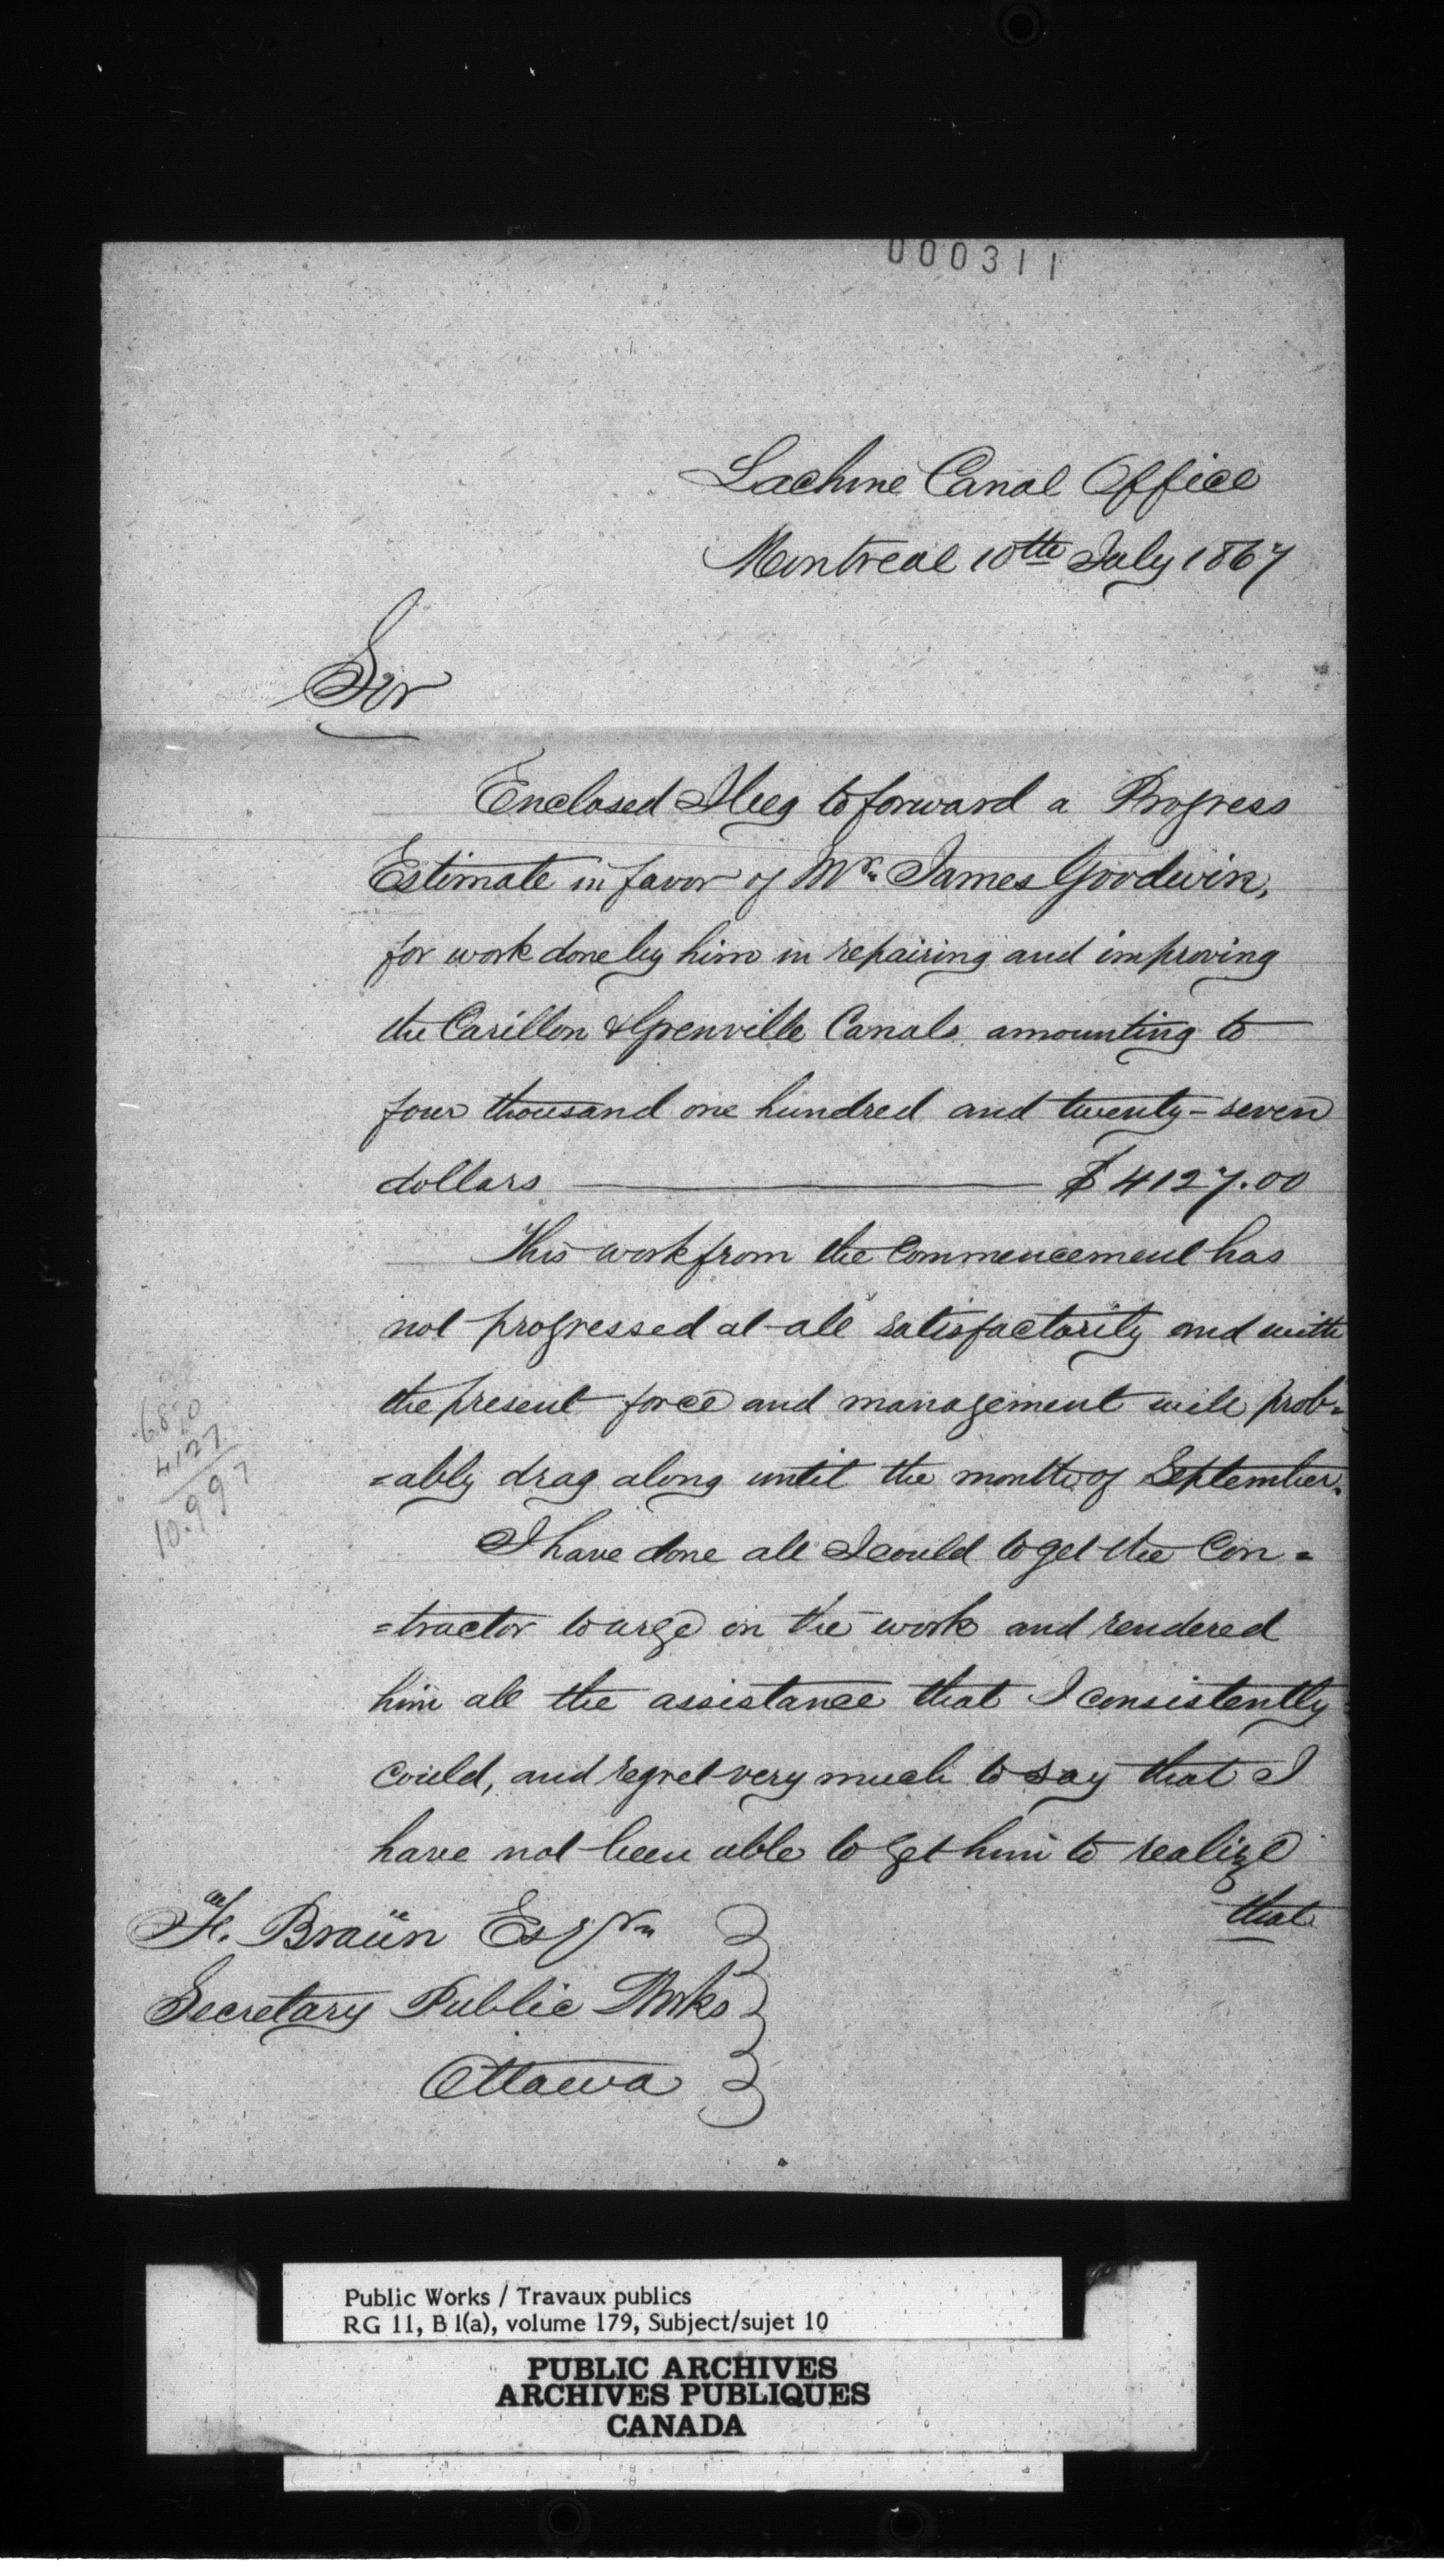 000311
Lachine Canal Office
Montreal 10th July 1867
Sir
Enclosed I beg to forward a Progress
Estimate in favor of Mr. James Goodwin,
for work done by him in repairing and improving
the Carillon & Grenville Canals amounting to
four thousand one hundred and twenty-seven
dollars ——— $4127.00
This work from the Commencement has
not progressed at all satisfactorily and with
the present force and management will prob=
=ably drag along until the month of September.
6870
4127
10.997
I have done all I could to get the Con=
=tractor to urge on the work and rendered
him all the assistance that I consistently
could, and regret very much to say that I
have not been able to get him to realize
that
F. Braün Esqr.
Secretary Public Works
Ottawa
Public Works / Travaux publics
RG 11, B 1(a), volume 179, Subject/sujet 10
PUBLIC ARCHIVES
ARCHIVES PUBLIQUES
CANADA